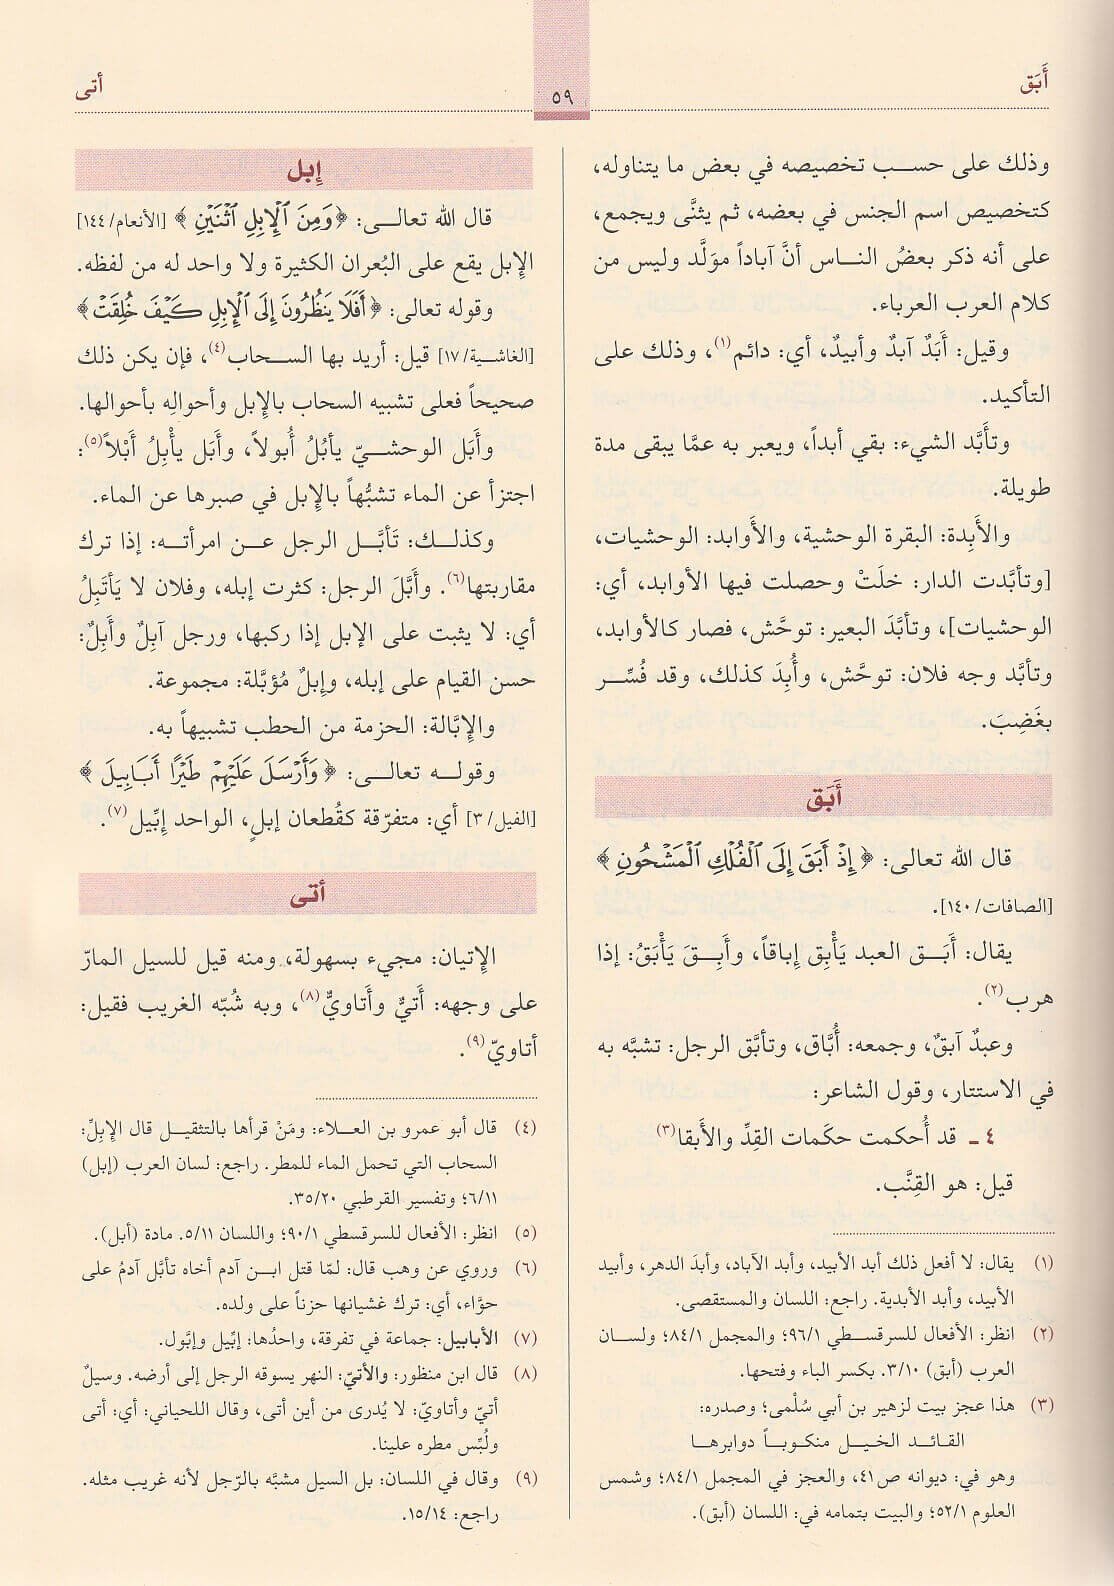 أَبَق
٥٩
أتى
وذلك على حسب تخصيصه في بعض ما يتناوله،
كتخصيص اسم الجنس في بعضه، ثم يثنَّى ويجمع،
على أنه ذكر بعضُ الناس أنَّ آباداً مولَّد وليس من
كلام العرب العرباء.
وقيل: أَبَدٌ آبدٌ وأبيدٌ، أي: دائم(١)، وذلك على
التأكيد.
وتأَبَّد الشيء: بقي أبداً، ويعبر به عمَّا يبقى مدة
طويلة.
والأَبِدة: البقرة الوحشية، والأَوابد: الوحشيات،
[وتأبَّدت الدار: خلَتْ وحصلت فيها الأوابد، أي:
الوحشيات]، وتأبَّدَ البعير: توحَّش، فصار كالأوابد،
وتأبَّد وجه فلان: توحَّش، وأُبِدَ كذلك، وقد فُسِّر
بغَضِبَ.
أَبَق
قال الله تعالى: ﴿إِذْ أَبَقَ إِلَى ٱلْفُلْكِ ٱلْمَشْحُونِ﴾
[الصافات/١٤٠].
يقال: أَبَق العبد يَأْبِق إباقاً، وأَبِقَ يَأْبَقُ: إذا
هرب(٢).
وعبدٌ آبقٌ، وجمعه: أُبَّاق، وتأبَّق الرجل: تشبَّه به
في الاستتار، وقول الشاعر:
٤ ـ قد أُحكمت حكَمات القِدِّ والأَبقا(٣)
قيل: هو القِنَّب.
(١) يقال: لا أفعل ذلك أبد الأبيد، وأبد الآباد، وأبدَ الدهر، وأبيد
الأبيد، وأبد الأبدية. راجع: اللسان والمستقصى.
(٢) انظر: الأفعال للسرقسطي ٩٦/١؛ والمجمل ٨٤/١؛ ولسان
العرب (أبق) ٣/١٠. بكسر الباء وفتحها.
(٣) هذا عجز بيت لزهير بن أبي سُلْمى؛ وصدره:
القائد الخيل منكوباً دوابرها
وهو في: ديوانه ص٤١، والعجز في المجمل ٨٤/١؛ وشمس
العلوم ٥٢/١؛ والبيت بتمامه في: اللسان (أبق).
إبل
قال الله تعالى: ﴿وَمِنَ ٱلْإِبِلِ ٱثْنَيْنِ﴾ [الأنعام/١٤٤]
الإبل يقع على البُعران الكثيرة ولا واحد له من لفظه.
وقوله تعالى: ﴿أَفَلَا يَنظُرُونَ إِلَى ٱلْإِبِلِ كَيْفَ خُلِقَتْ﴾
[الغاشية/١٧] قيل: أريد بها السحاب(٤)، فإن يكن ذلك
صحيحاً فعلى تشبيه السحاب بالإبل وأحوالِه بأحوالها.
وأَبَل الوحشيّ يأبُلُ أُبولاً، وأَبَل يأْبِلُ أَبْلاً(٥):
اجتزأ عن الماء تشبُّهاً بالإبل في صبرها عن الماء.
وكذلك: تَأبَّل الرجل عن امرأته: إذا ترك
مقاربتها(٦). وأَبَّلَ الرجل: كثرت إبله، وفلان لا يَأتَبِلُ
أي: لا يثبت على الإبل إذا ركبها، ورجل آبِلٌ وأَبِلٌ:
حسن القيام على إبله، وإبلٌ مُؤبَّلة: مجموعة.
والإبَّالة: الحزمة من الحطب تشبيهاً به.
وقوله تعالى: ﴿وَأَرْسَلَ عَلَيْهِمْ طَيْرًا أَبَابِيلَ﴾
[الفيل/٣] أي: متفرّقة كقُطعان إبلٍ، الواحد إبِّيل(٧).
أتى
الإتيان: مجيء بسهولة، ومنه قيل للسيل المارّ
على وجهه: أَتيٌّ وأَتاويٌّ(٨)، وبه شُبّه الغريب فقيل:
أتاويّ(٩).
(٤) قال أبو عمرو بن العلاء: ومَنْ قرأها بالتثقيل قال الإبِلّ:
السحاب التي تحمل الماء للمطر. راجع: لسان العرب (إبل)
٦/١١؛ وتفسير القرطبي ٣٥/٢٠.
(٥) انظر: الأفعال للسرقسطي ٩٠/١؛ واللسان ٥/١١. مادة (أبل).
(٦) وروي عن وهب قال: لمّا قتل ابن آدم أخاه تأبَّل آدمُ على
حوَّاء، أي: ترك غشيانها حزناً على ولده.
(٧) الأبابيل: جماعة في تفرقة، واحدُها: إبِّيل وإبَّول.
(٨) قال ابن منظور: والأتيّ: النهر يسوقه الرجل إلى أرضه. وسيلٌ
أتيّ وأتاويّ: لا يُدرى من أين أتى، وقال اللحياني: أي: أتى
ولُبِّس مطره علينا.
(٩) وقال في اللسان: بل السيل مشبَّه بالرّجل لأنه غريب مثله.
راجع: ١٥/١٤.